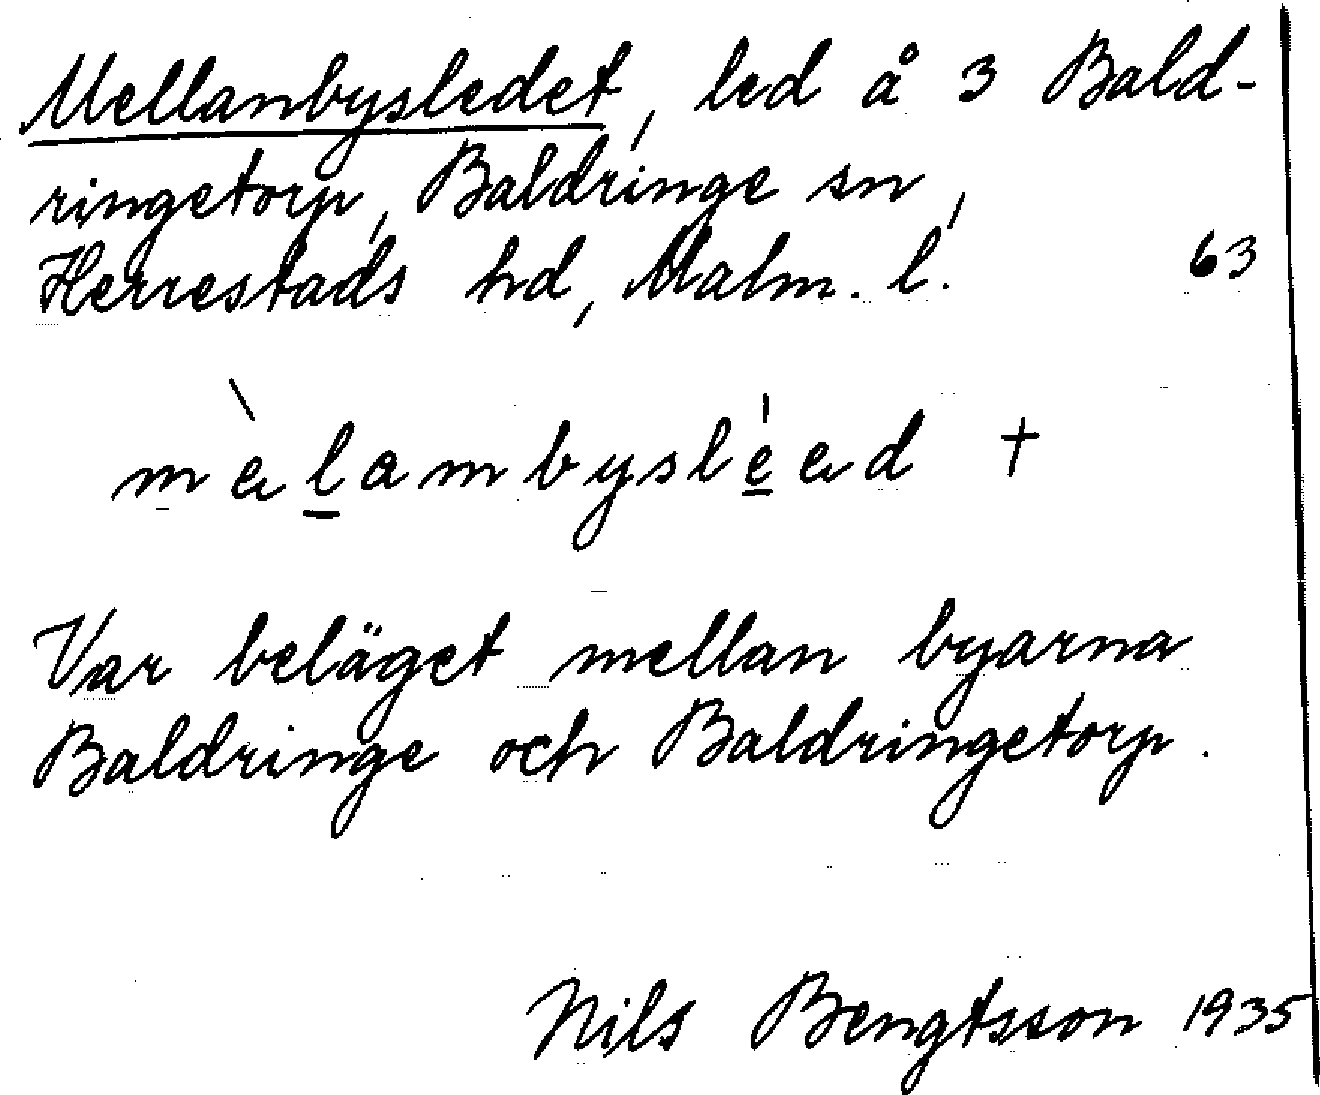 Mellanbysledet, led å 3 Bald-
ringetorp, Baldringe sn,
Herrestads hd, Malm. l. 63
mèlambysléed †
Var beläget mellan byarna
Baldringe och Baldringetorp.
Nils Bengtsson 1935